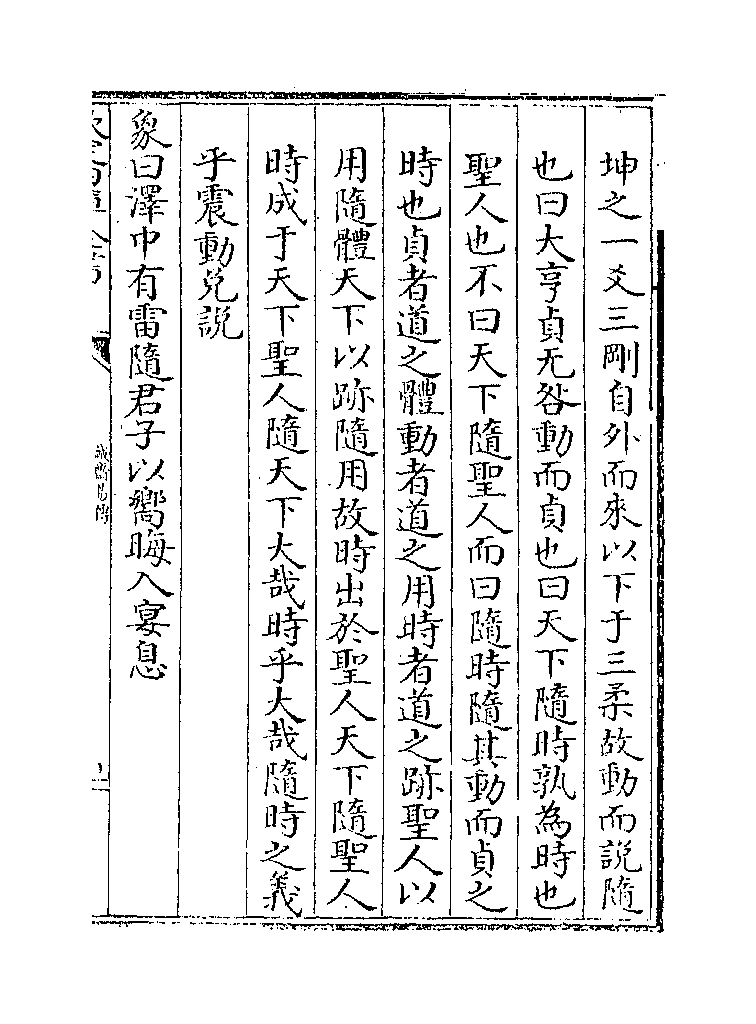 坤之一爻三剛自外而來以下于三柔故動而説隨
也曰大亨貞无咎動而貞也曰天下隨時孰為時也
聖人也不曰天下隨聖人而曰隨時隨其動而貞之
時也貞者道之體動者道之用時者道之跡聖人以
用隨體天下以跡隨用故時出於聖人天下隨聖人
時成于天下聖人隨天下大哉時乎大哉隨時之義
乎震動兑説
象曰澤中有雷隨君子以嚮晦入宴息
誠齋易傳